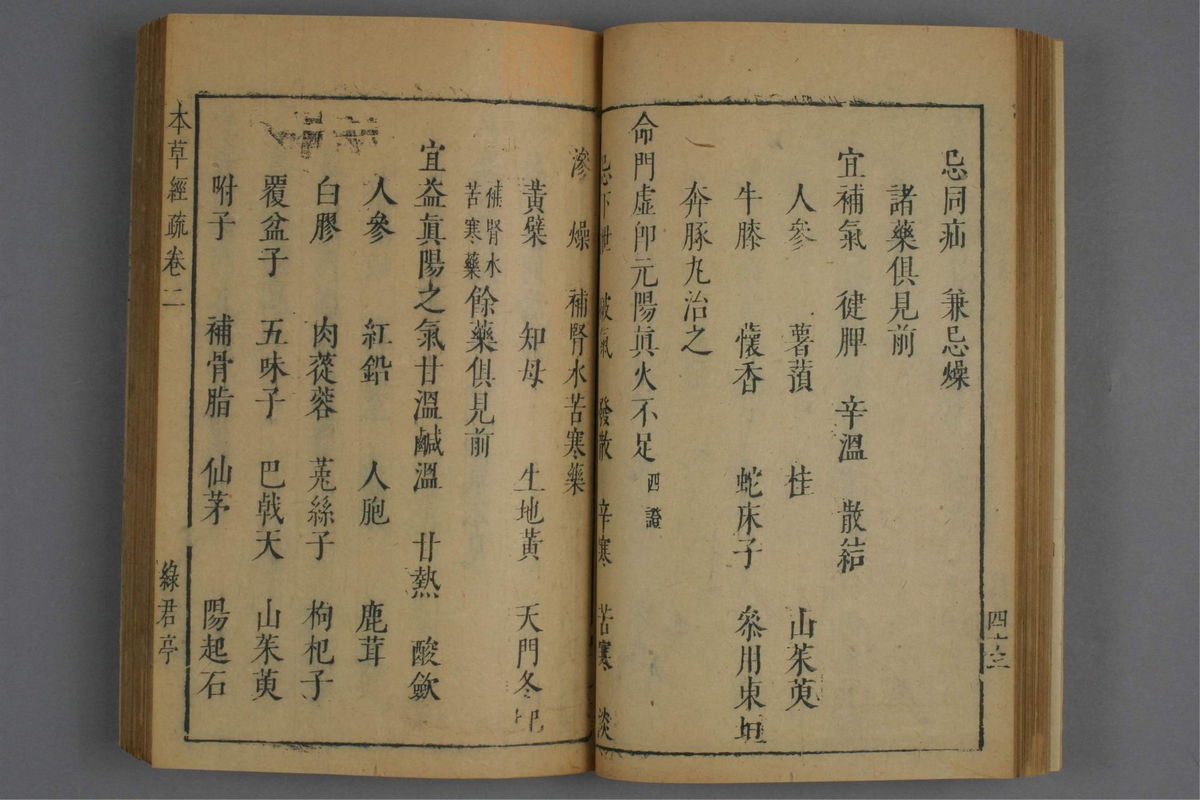 忌同疝　兼忌燥
諸藥俱見前
宜補氣　健脾　辛溫　散結
人參　薯蕷　桂　山茱萸
牛膝　懷香　蛇床子　叅用東垣
奔豚丸治之
命門虛卽元陽眞火不足四證
忌下泄　破氣　發散　辛寒　苦寒　淡
滲　燥　補腎水苦寒藥
黃檗　知母　生地黃　天門冬
補腎水
苦寒藥
餘藥俱見前
宜益眞陽之氣甘溫鹹溫　甘熱　酸歛
人參　紅鉛　人胞　鹿茸
白膠　肉蓯蓉　菟絲子　枸杞子
覆盆子　五味子　巴戟天　山茱萸
附子　補骨脂　仙茅　陽起石
本草經疏卷二
綠君亭
四十三